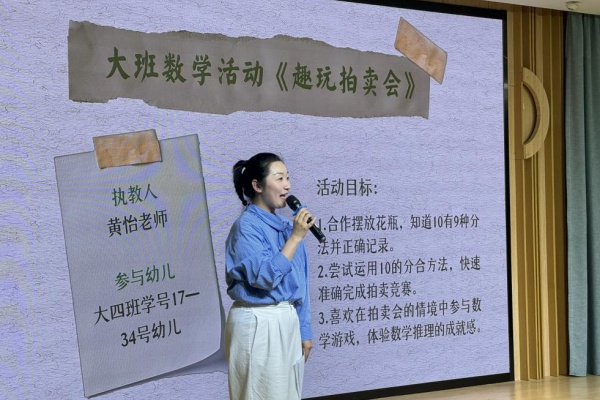 大班数学活动《趣玩拍卖会》
执教人
黄怡老师
参与幼儿
大四班学号17—
34号幼儿
活动目标：
1.合作摆放花瓶，知道10有9种分
法并正确记录。
2.尝试运用10的分合方法，快速
准确完成拍卖竞赛。
3.喜欢在拍卖会的情境中参与数
学游戏，体验数学推理的成就感。